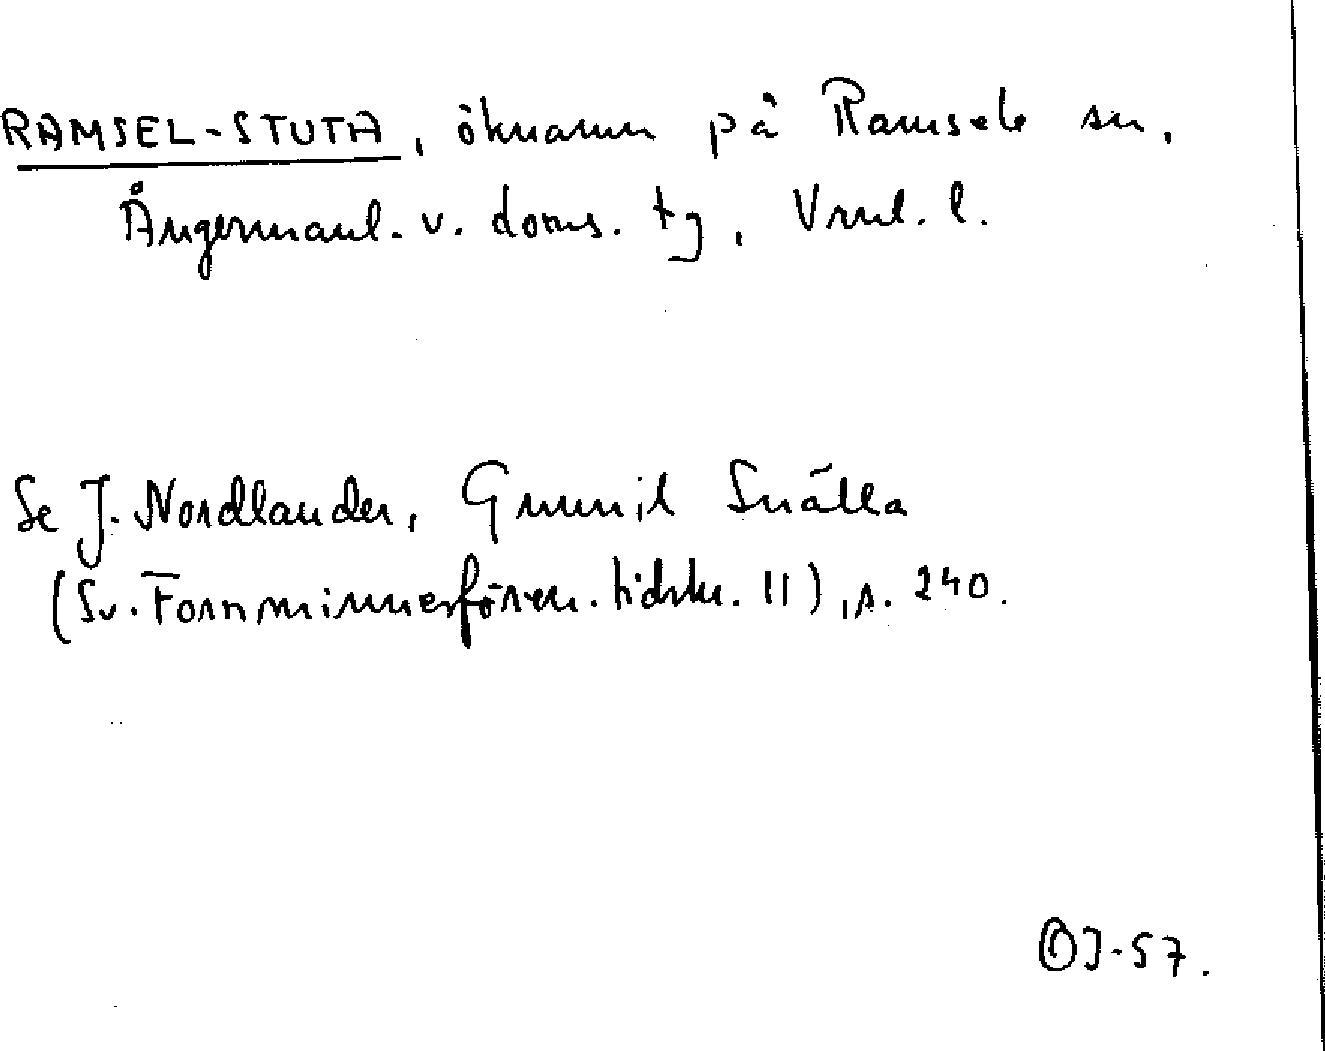 RAMSEL-STUTA, öknamn på Ramsele sn,
Ångermanl. v. doms. tg, Vnl. l.
Se J. Nordlander, Gunnil Snälla
(Sv. Fornminnesfören. tidskr. 11), s. 240.
OJ-57.